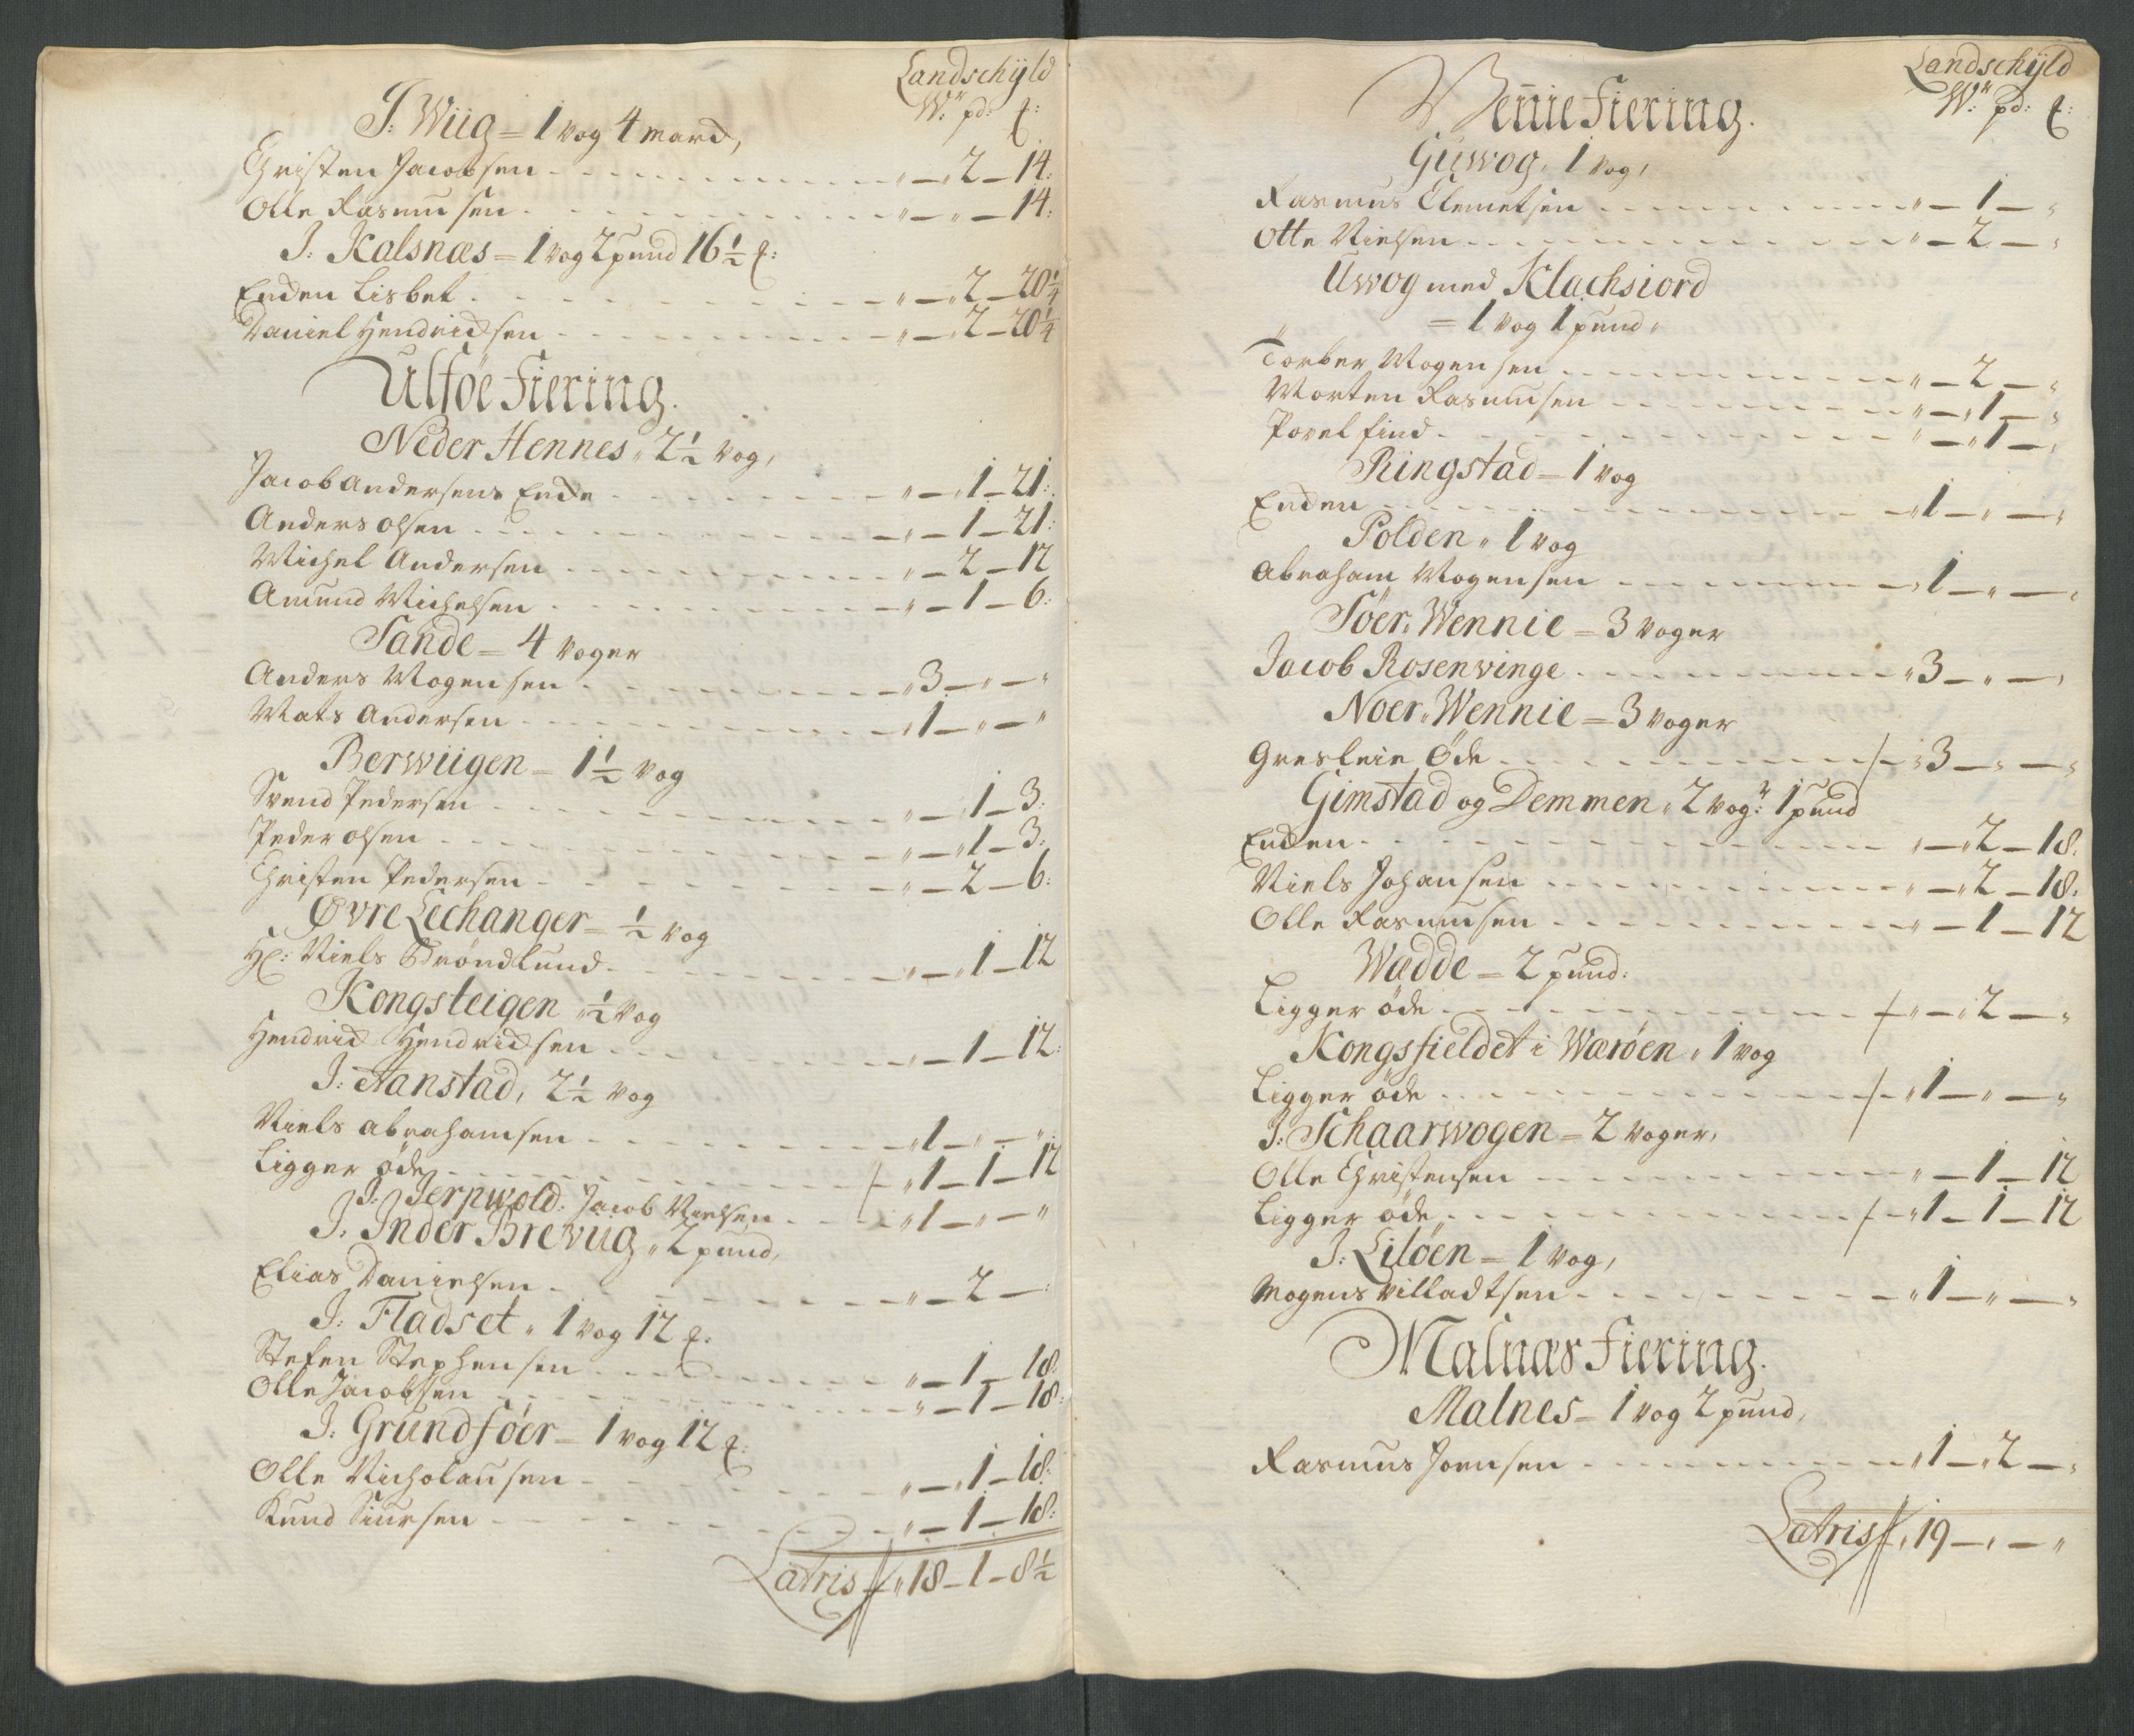 Landschÿld
W.r pd: ℔:
J: Wiig = 1 vog 4 march,
Christen Jacobsen - - - „ — 2 — 14:
Olle Rasmusen - - - „ — „ — 14:
J: Kalsnæs = 1 vog 2 pund 16 1/2 ℔:
Enchen Lisbet - - - „ — 2 — 20 1/4
Daniel Hendrichsen - - - „ — 2 — 20 1/4
Ulföe Fiering.
Neder Hennes „ 2 1/2 vog,
Jacob Andersens Enche - - - „ — 1 — 21:
Anders Olsen - - - „ — 1 — 21:
Michel Andersen - - - „ — 2 — 12
Amund Michelsen - - - „ — 1 — 6:
Sande = 4 voger
Anders Mogensen - - - „ 3 — „ — „
Mats Andersen - - - „ 1 — „ — „
Berwiigen = 1 1/2 vog
Svend Pedersen - - - „ — 1 — 3:
Peder Olsen - - - „ — 1 — 3:
Christen Pedersen - - - „ — 2 — 6:
Øvre Lechanger = 1/2 vog
Hr: Niels Tröndlund - - - „ — 1 — 12
Kongsteigen „ 1/2 vog
Hendrich Hendrichsen - - - „ — 1 — 12:
J: Aanstad, 2 1/2 vog
Niels Abrahamsen - - - „ 1 — „ — „
Ligger öde - - - „ 1 — 1 — 12
J: Jerpwold: Jacob Nielsen - - - „ 1 — „ — „
J: Inder Brevüg „ 2 pund,
Elias Danielsen - - - „ — 2 — :
J: Fladset „ 1 vog 12 ℔:
Stefen Stephensen - - - „ — 1 — 18
Olle Jacobsen - - - „ — 1 — 18:
J: Grundföer = 1 vog 12 ℔:
Olle Nicholausen - - - „ — 1 — 18:
Knud Siursen - - - „ — 1 — 18:
Latris „ 18 — 1 — 8 1/2
Landschÿld
W.r pd: ℔:
Wennie Fiering.
Güwog, 1 vog,
Rasmus Clemetsen - - - „ — 1 — „
Otte Nielsen - - - „ — 2 — „
Uwog med Klachsiord
= 1 vog 1 pund„
Torber Mogensen - - - „ — 2 — „
Morten Rasmusen - - - „ — 1 — „
Povel find - - - „ — 1 — „
Ringstad = 1 vog
Enchen - - - „ 1 — „ — „
Polden „ 1 vog
Abraham Mogensen - - - „ 1 — „ — „
Söer„Wennie = 3 voger
Jacob Rosenvinge - - - „ 3 — „ — „
Noer„Wennie = 3 voger
Gresleie Öde - - - „ 3 — „ — „
Gimstad og Demmen „ 2 vog.r 1 pund
Enchen - - - „ — 2 — 18:
Niels Johansen - - - „ — 2 — 18:
Olle Rasmusen - - - „ — 1 — 12
Wædde = 2 pund:
Ligger öde - - - „ — 2 — „
Kongsfieldet i Wæröen „ 1 vog
Ligger öde - - - „ 1 — „ — „
J: Schaarwogen = 2 voger,
Olle Christensen - - - „ — 1 — 12
Ligger öde - - - „ 1 — 1 — 12
J: Lilöen = 1 vog,
Mogens Villadtsen - - - „ 1 — „ — „
Malnæs Fiering.
Malnes = 1 vog 2 pund,
Rasmus Joensen - - - „ 1 — 2 — „
Latris „ 19 — „ — „